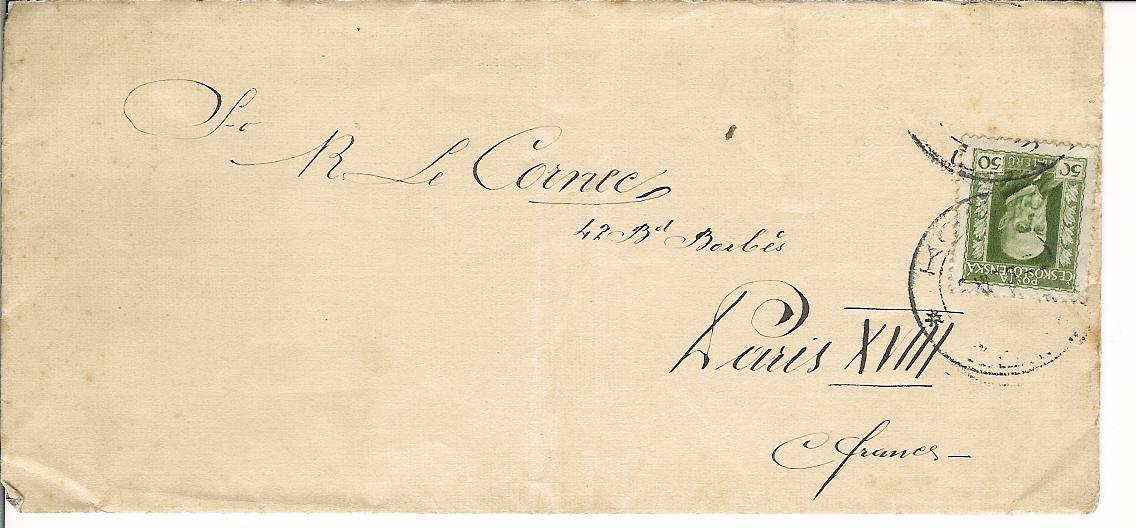 R. Le Cornec
42 Bd Barbès
Paris XVIII
France
50 50
HALÉŘŮ
POŠTA
ČESKOSLOVENSKÁ